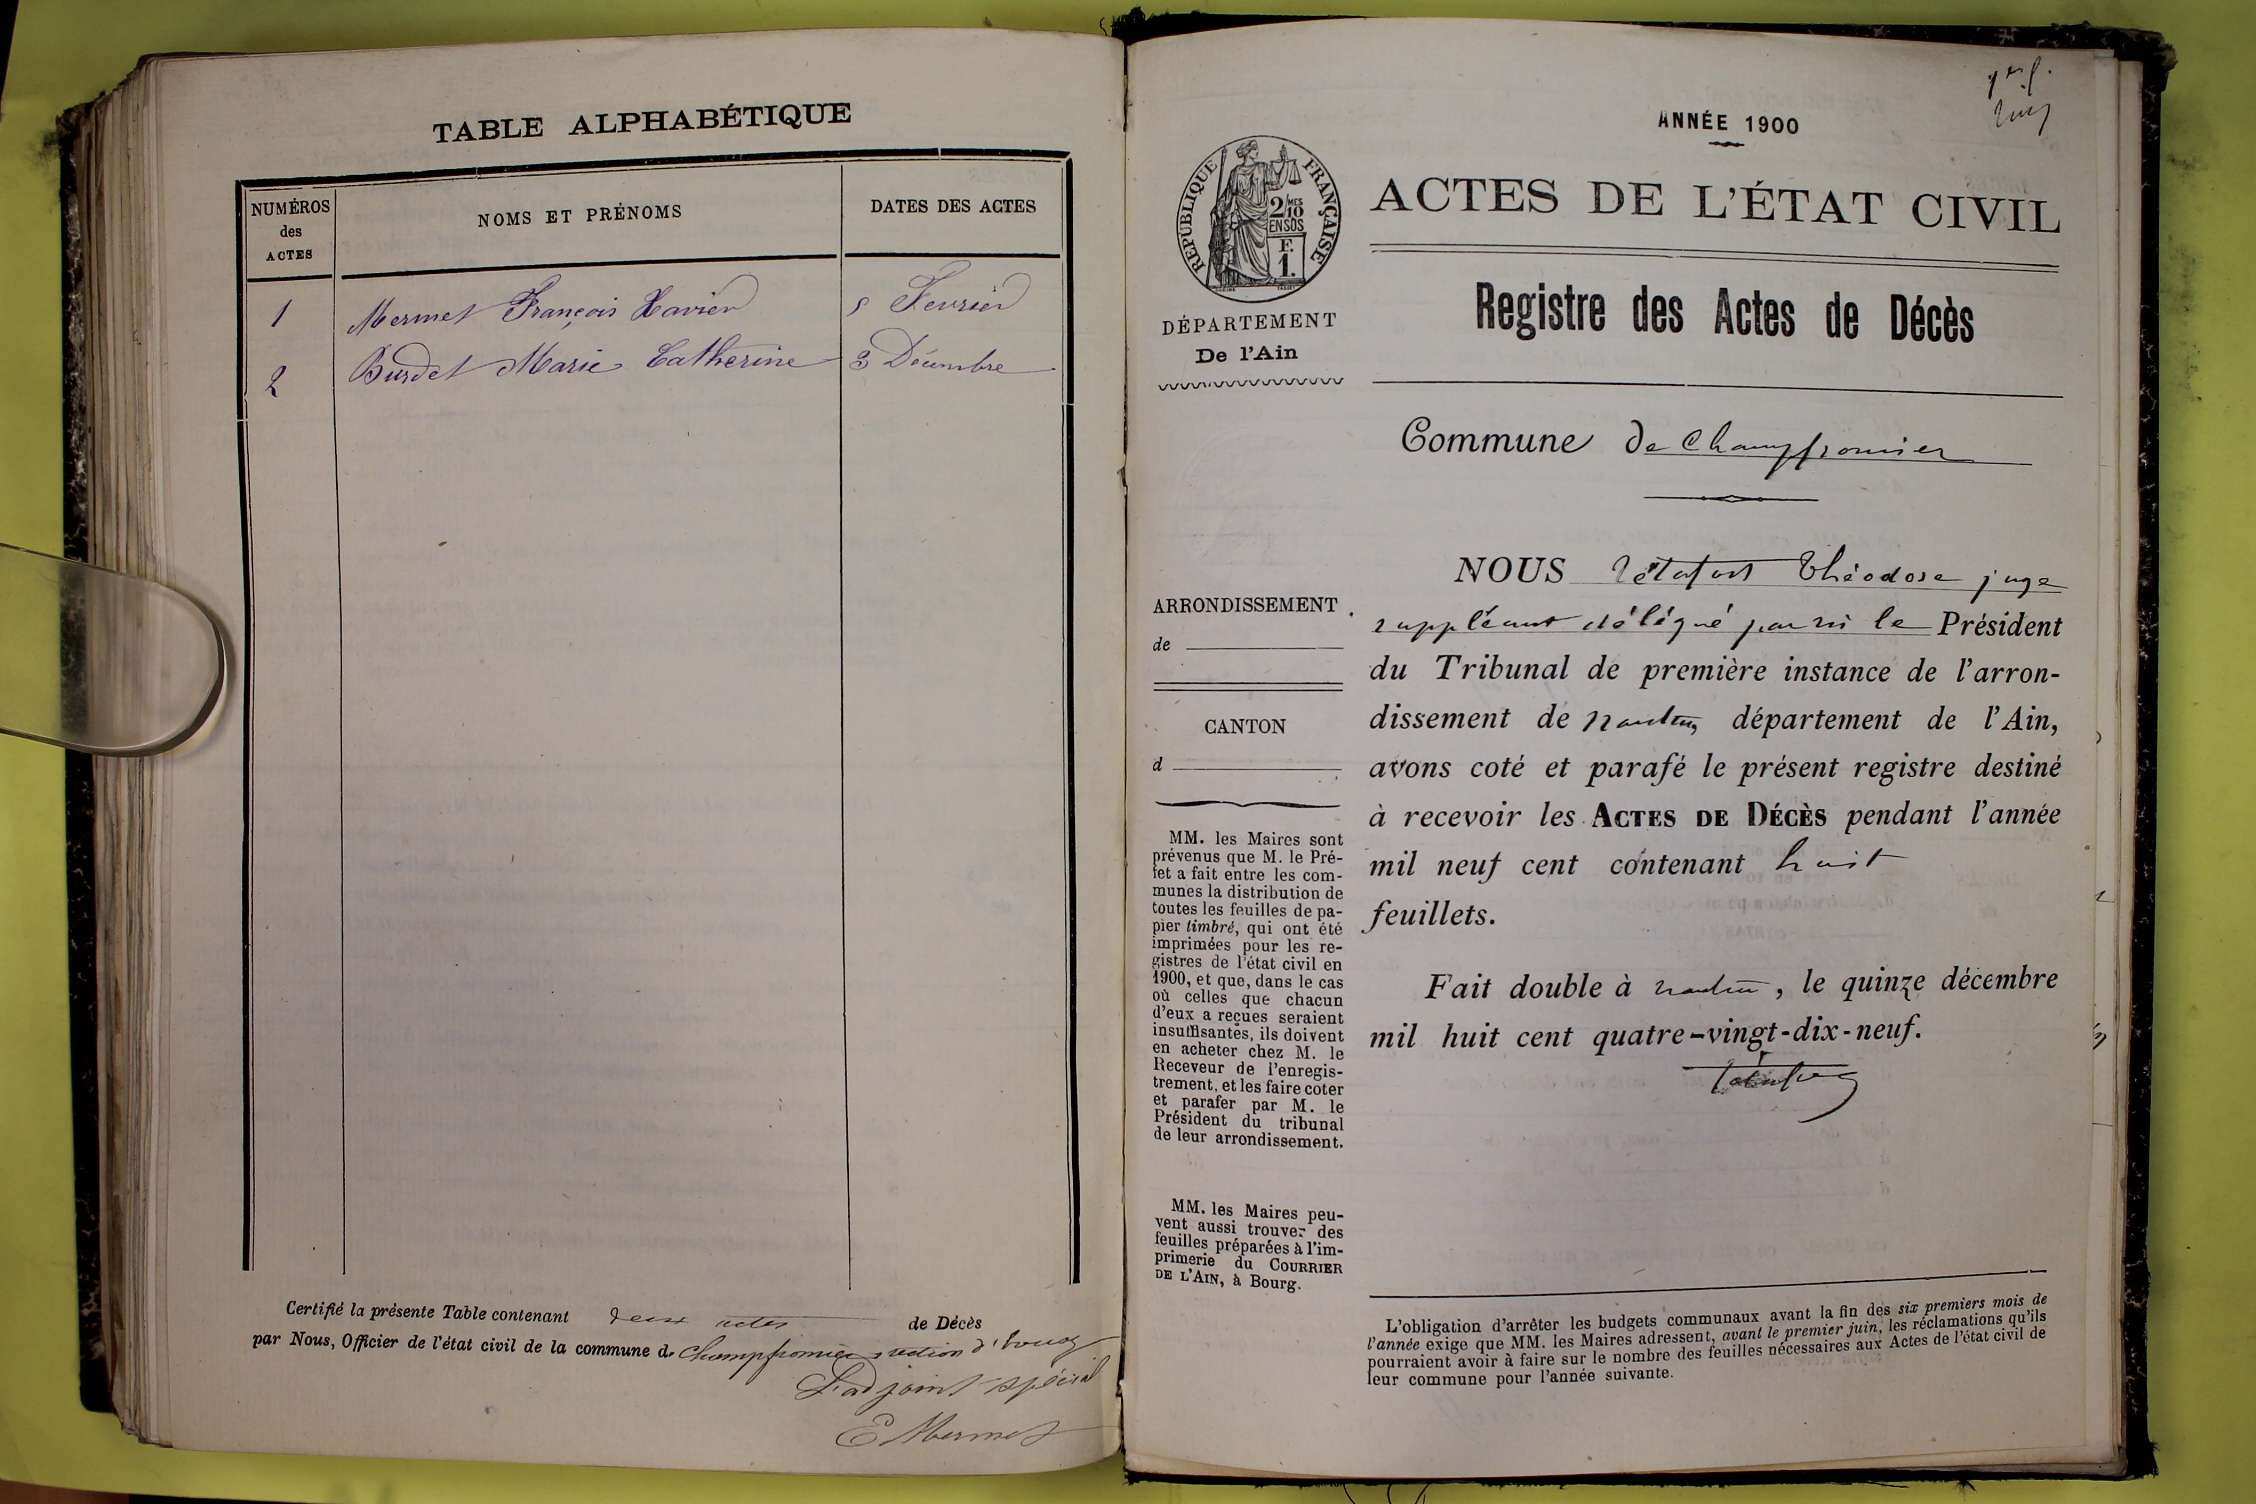 TABLE ALPHABÉTIQUE
NUMÉROS
des
ACTES
NOMS ET PRÉNOMS
DATES DES ACTES
1 Mermet François Xavier 5 Fevrier
2 Burdet Marie Catherine 3 Décembre
Certifié la présente Table contenant deux actes de Décès
par Nous, Officier de l'état civil de la commune de Champfromier section d'
L'adjoint spécial
E Mermet
ANNÉE 1900
ACTES DE L'ÉTAT CIVIL
RÉPUBLIQUE FRANÇAISE
2/10 MES
EN SUS
F.
1.
DÉPARTEMENT
De l'Ain
Registre des Actes de Décès
Commune de Champfromier
ARRONDISSEMENT
de
CANTON
d
MM. les Maires sont
prévenus que M. le Pré-
fet a fait entre les com-
munes la distribution de
toutes les feuilles de pa-
pier timbré, qui ont été
imprimées pour les re-
gistres de l'état civil en
1900, et que, dans le cas
où celles que chacun
d'eux a reçues seraient
insuffisantes, ils doivent
en acheter chez M. le
Receveur de l'enregis-
trement, et les faire coter
et parafer par M. le
Président du tribunal
de leur arrondissement.
MM. les Maires peu-
vent aussi trouver des
feuilles préparées à l'im-
primerie du COURRIER
DE L'AIN, à Bourg.
NOUS Théodore juge
suppléant délégué par le Président
du Tribunal de première instance de l'arron-
dissement de Nantua, département de l'Ain,
avons coté et parafé le présent registre destiné
à recevoir les ACTES DE DÉCÈS pendant l'année
mil neuf cent contenant huit
feuillets.
Fait double à Nantua, le quinze décembre
mil huit cent quatre-vingt-dix-neuf.
L'obligation d'arrêter les budgets communaux avant la fin des six premiers mois de
l'année exige que MM. les Maires adressent, avant le premier juin, les réclamations qu'ils
pourraient avoir à faire sur le nombre des feuilles nécessaires aux Actes de l'état civil de
leur commune pour l'année suivante.